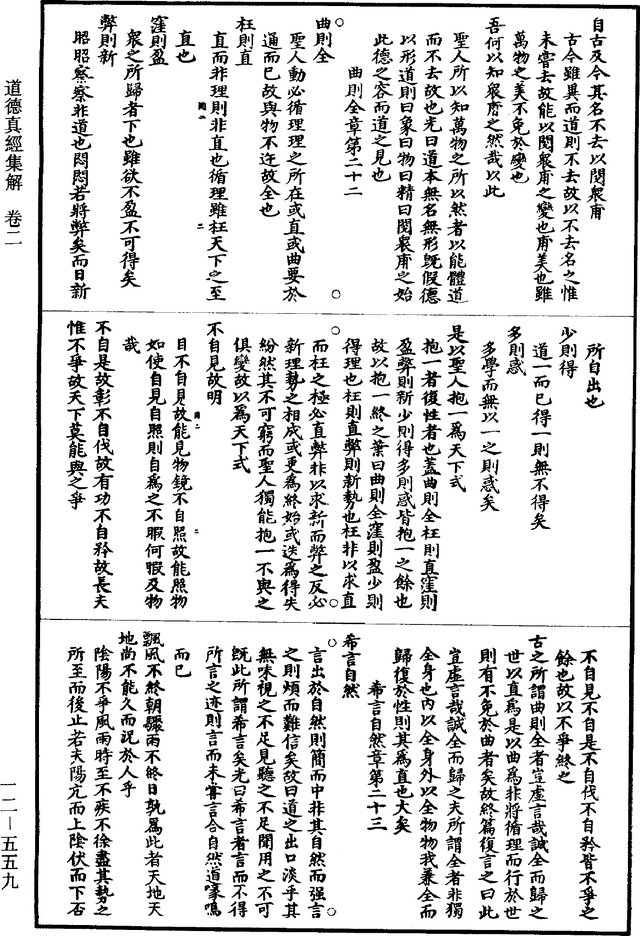 道德真經集解 卷二
一二—五五九
自古及今其名不去以閱衆甫
古今雖異而道則不去故以不去名之惟
未嘗去故能以閱衆甫之變也甫美也雖
萬物之美不免於變也
吾何以知衆甫之然哉以此
聖人所以知萬物之所以然者以能體道
而不去故也光曰道本無名無形旣假德
以形道則曰象曰物曰精曰閱衆甫之始
此德之容而道之見也
曲則全章第二十二
曲則全
聖人動必循理理之所在或直或曲要於
通而已故與物不迕故全也
枉則直
直而非理則非直也循理雖枉天下之至
直也
窪則盈
衆之所歸者下也雖欲不盈不可得矣
弊則新
昭昭察察非道也悶悶若將弊矣而日新
所自出也
少則得
道一而已得一則無不得矣
多則惑
多學而無以一之則惑矣
是以聖人抱一爲天下式
抱一者復性者也蓋曲則全枉則直窪則
盈弊則新少則得多則惑皆抱一之餘也
故以抱一終之葉曰曲則全窪則盈少則
得理也枉則直弊則新勢也枉非以求直
而枉之極必直弊非以求新而弊之反必
新理勢之相成或更爲終始或迭爲得失
紛然其不可窮而聖人獨能抱一不與之
俱變故以爲天下式
不自見故明
目不自見故能見物鏡不自照故能照物
如使自見自照則自爲之不暇何暇及物
哉
不自是故彰不自伐故有功不自矜故長夫
惟不爭故天下莫能與之爭
不自見不自是不自伐不自矜皆不爭之
餘也故以不爭終之
古之所謂曲則全者豈虛言哉誠全而歸之
世以直爲是以曲爲非將循理而行於世
則有不免於曲者矣故終篇復言之曰此
豈虛言哉誠全而歸之夫所謂全者非獨
全身也內以全身外以全物物我兼全而
歸復於性則其爲直也大矣
希言自然章第二十三
希言自然
言出於自然則簡而中非其自然而强言
之則煩而難信矣故曰道之出口淡乎其
無味視之不足見聽之不足聞用之不可
旣此所謂希言矣光曰希言者言而不得
所言之迹則言而未嘗言合自然道喙鳴
而已
飄風不終朝驟雨不終日孰爲此者天地天
地尚不能久而況於人乎
陰陽不爭風雨時至不疾不徐盡其勢之
所至而後止若夫陽亢而上陰伏而下否